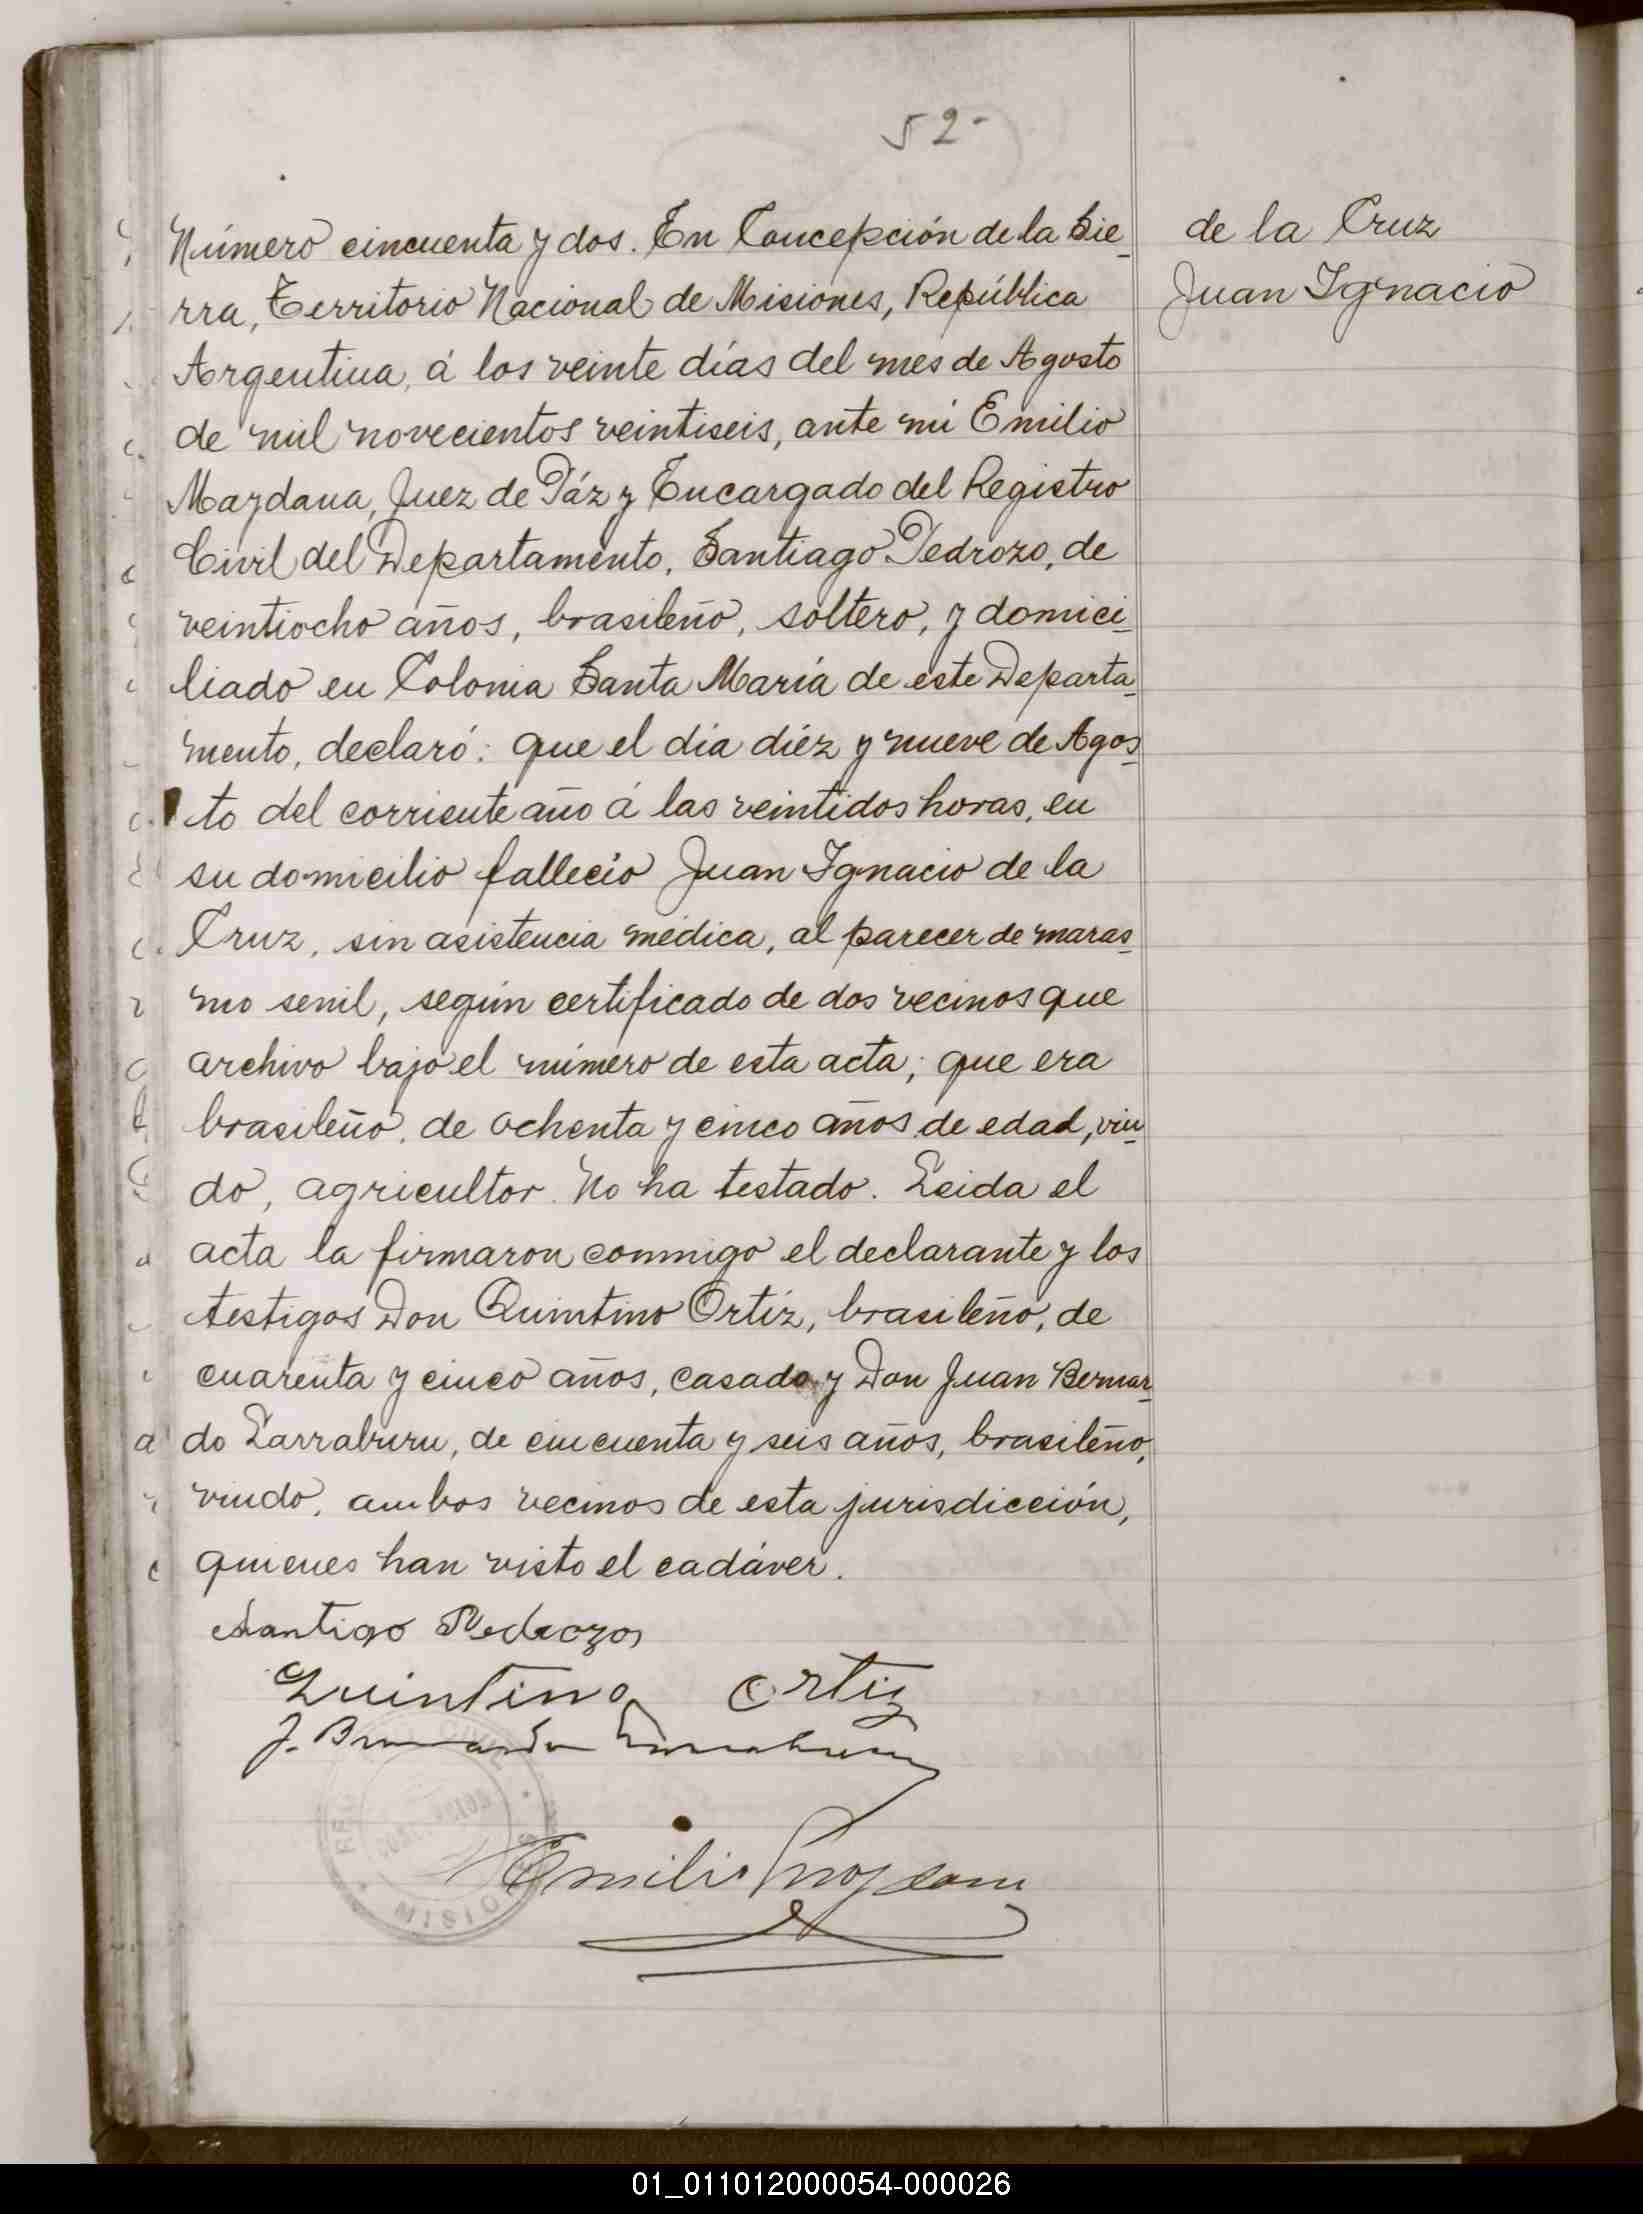 52-
Número cincuenta y dos. En Concepción de la Sie-
rra, Territorio Nacional de Misiones, República
Argentina, á los veinte días del mes de Agosto
de mil novecientos veintiseis, ante mi Emilio
Maydana, Juez de Páz y Encargado del Registro
Civil del Departamento, Santiago Pedrozo, de
veintiocho años, brasileño, soltero, y domici-
liado en Colonia Santa María de este Departa-
mento, declaró: que el día diéz y nueve de Agos-
to del corriente año á las veintidos horas, en
su domicilio falleció Juan Ignacio de la
Cruz, sin asistencia médica, al parecer de maras-
mo senil, según certificado de dos vecinos que
archivo bajo el número de esta acta; que era
brasileño, de ochenta y cinco años de edad, viu-
do, agricultor. No ha testado. Leida el
acta la firmaron conmigo el declarante y los
testigos Don Quintino Ortíz, brasileño, de
cuarenta y cinco años, casado y Don Juan Bernar-
do Larraburu, de cincuenta y seis años, brasileño,
viudo, ambos vecinos de esta jurisdicción,
quienes han visto el cadáver.
de la Cruz
Juan Ignacio
Santigo Pedrozo
Quintino Ortiz
J. Bernardo Larraburu
Emilio Maydana
MISIONES
01_011012000054-000026